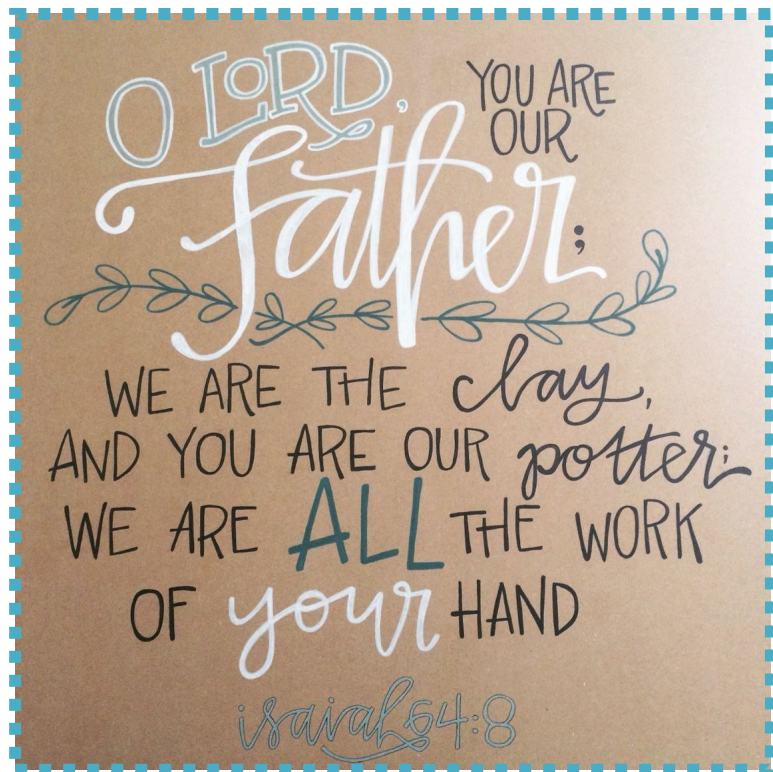 O LORD,
YOU ARE
OUR
father;
WE ARE THE clay,
AND YOU ARE OUR potter;
WE ARE ALL THE WORK
OF your HAND
isaiah 64:8